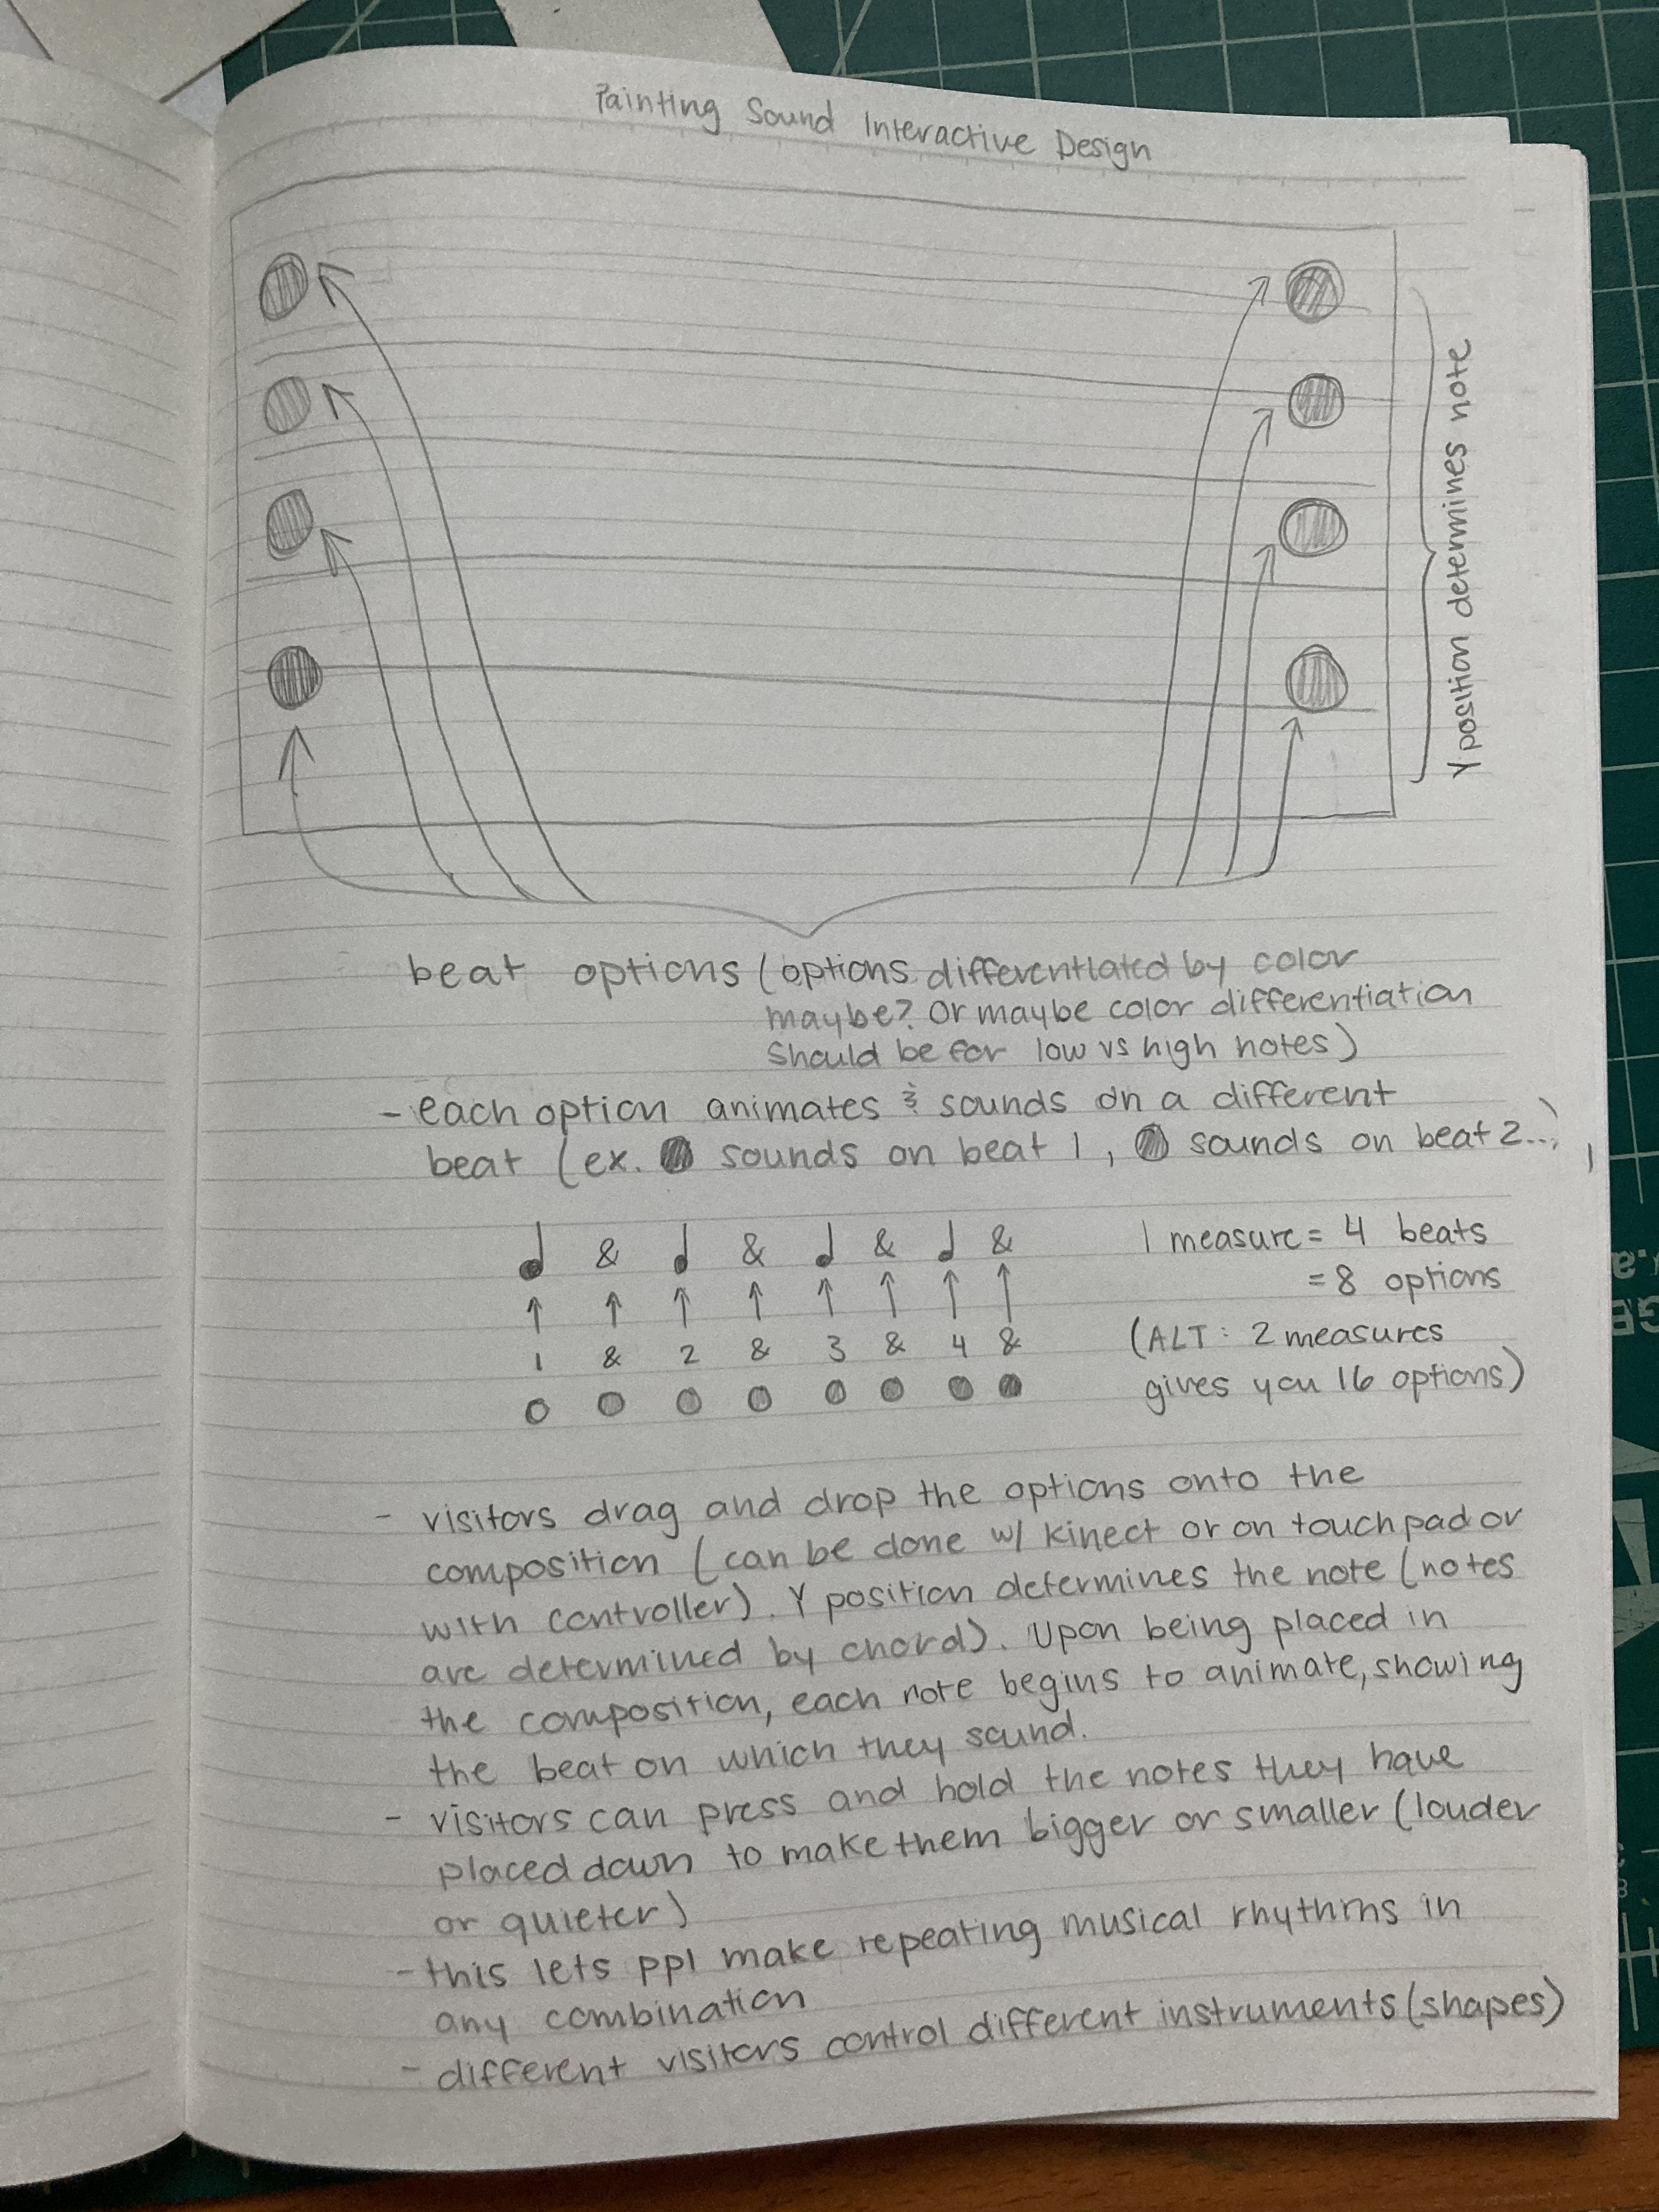 Painting Sound Interactive Design
Y position determines note
beat options (options differentiated by color
maybe? Or maybe color differentiation
should be for low vs high notes)
- each option animates & sounds on a different
beat (ex. sounds on beat 1, sounds on beat 2...)
& & & &
1 measure = 4 beats
= 8 options
1 & 2 & 3 & 4 &
(ALT: 2 measures
gives you 16 options)
- visitors drag and drop the options onto the
composition (can be done w/ kinect or on touchpad or
with controller). Y position determines the note (notes
are determined by chord). Upon being placed in
the composition, each note begins to animate, showing
the beat on which they sound.
- visitors can press and hold the notes they have
placed down to make them bigger or smaller (louder
or quieter)
- this lets ppl make repeating musical rhythms in
any combination
- different visitors control different instruments (shapes)